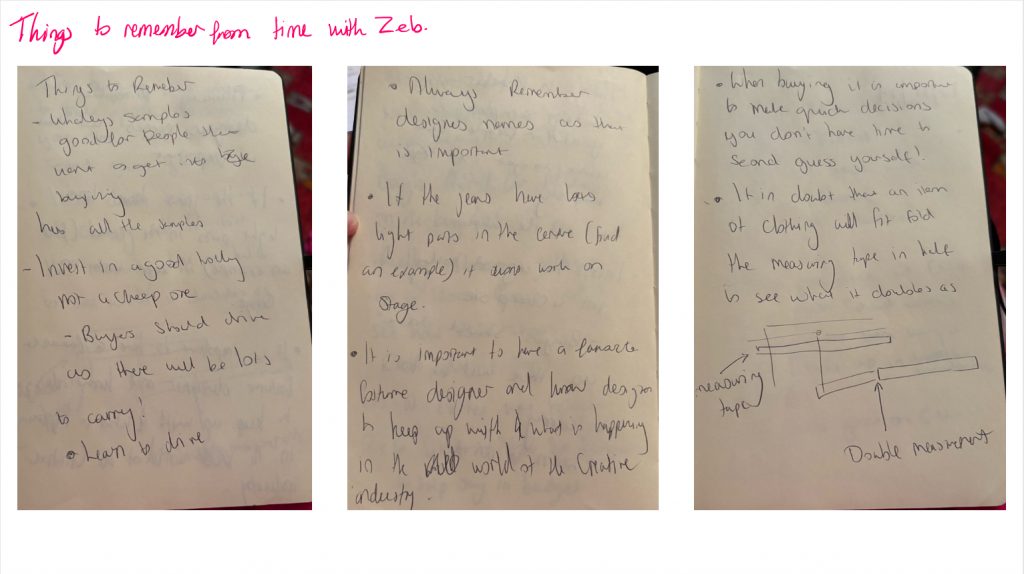 Things to remember from time with Zeb.
Things to Remeber
- Whaleys samples
good for people that
want to get into
buying
has all the samples
- Invest in a good trolly
not a cheep one
- Buyers should drive
as there will be lots
to carry!
• Learn to drive
• Always Remember
designes names as that
is important
• If the jeans have
light parts in the centre (find
an example) it work on
stage.
• It is important to have a
Costume designer and know design
to keep up with & what is happening
in the world of the Creative
industry.
• When buying it is important
to make quick decisions
you don't have time to
second guess yourself!
• If in doubt that an item
of clothing will fit fold
the measuring tape in half
to see what it doubles as
measuring
tape
Double measurement